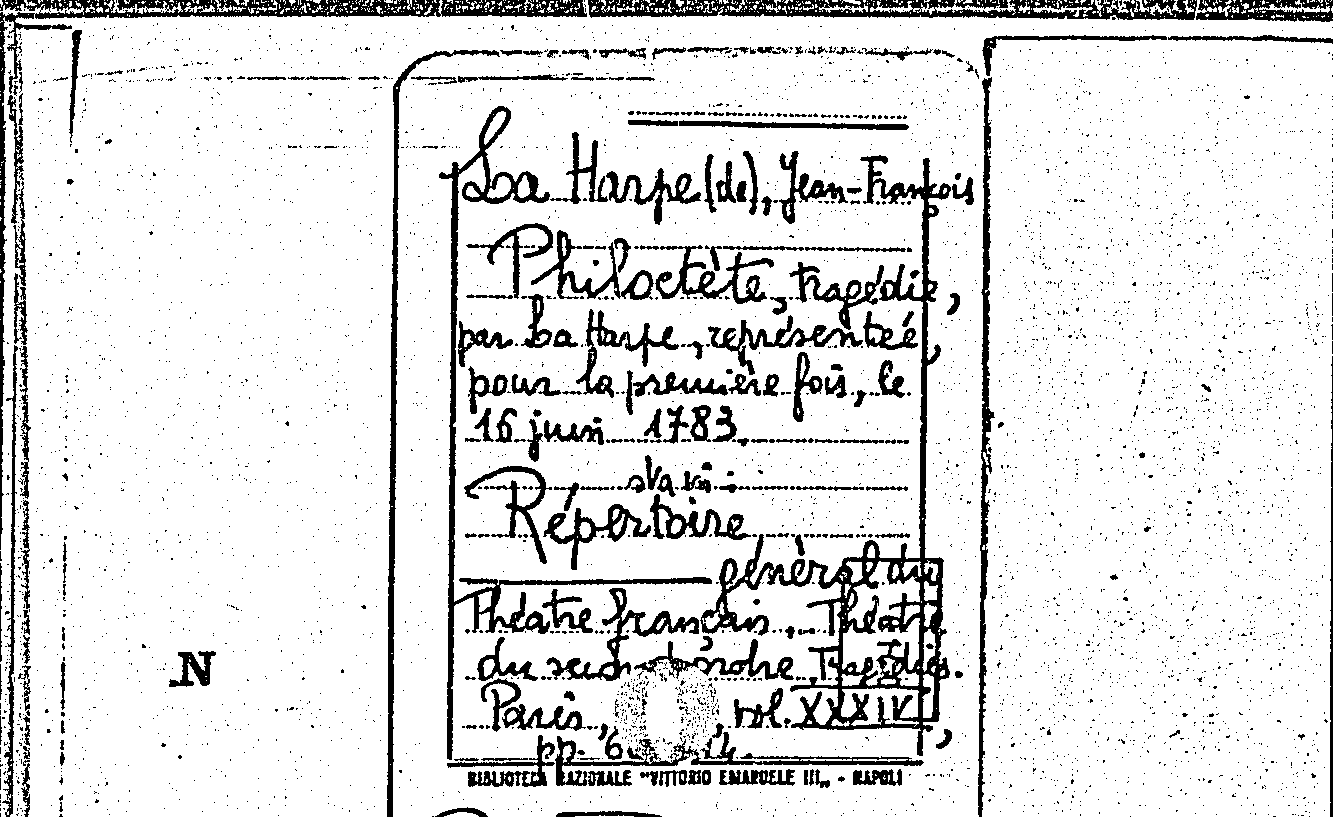 La Harpe (de), Jean-François
Philoctète, tragédie,
par La Harpe, représenteé,
pour la première fois, le
16 juin 1783.
sta in:
Répertoire
général du
Théatre français... Théatre
du second ordre Tragédies.
Paris, , vol. XXXIV,
pp. 6
N
BIBLIOTECA NAZIONALE "VITTORIO EMANUELE III„ - NAPOLI